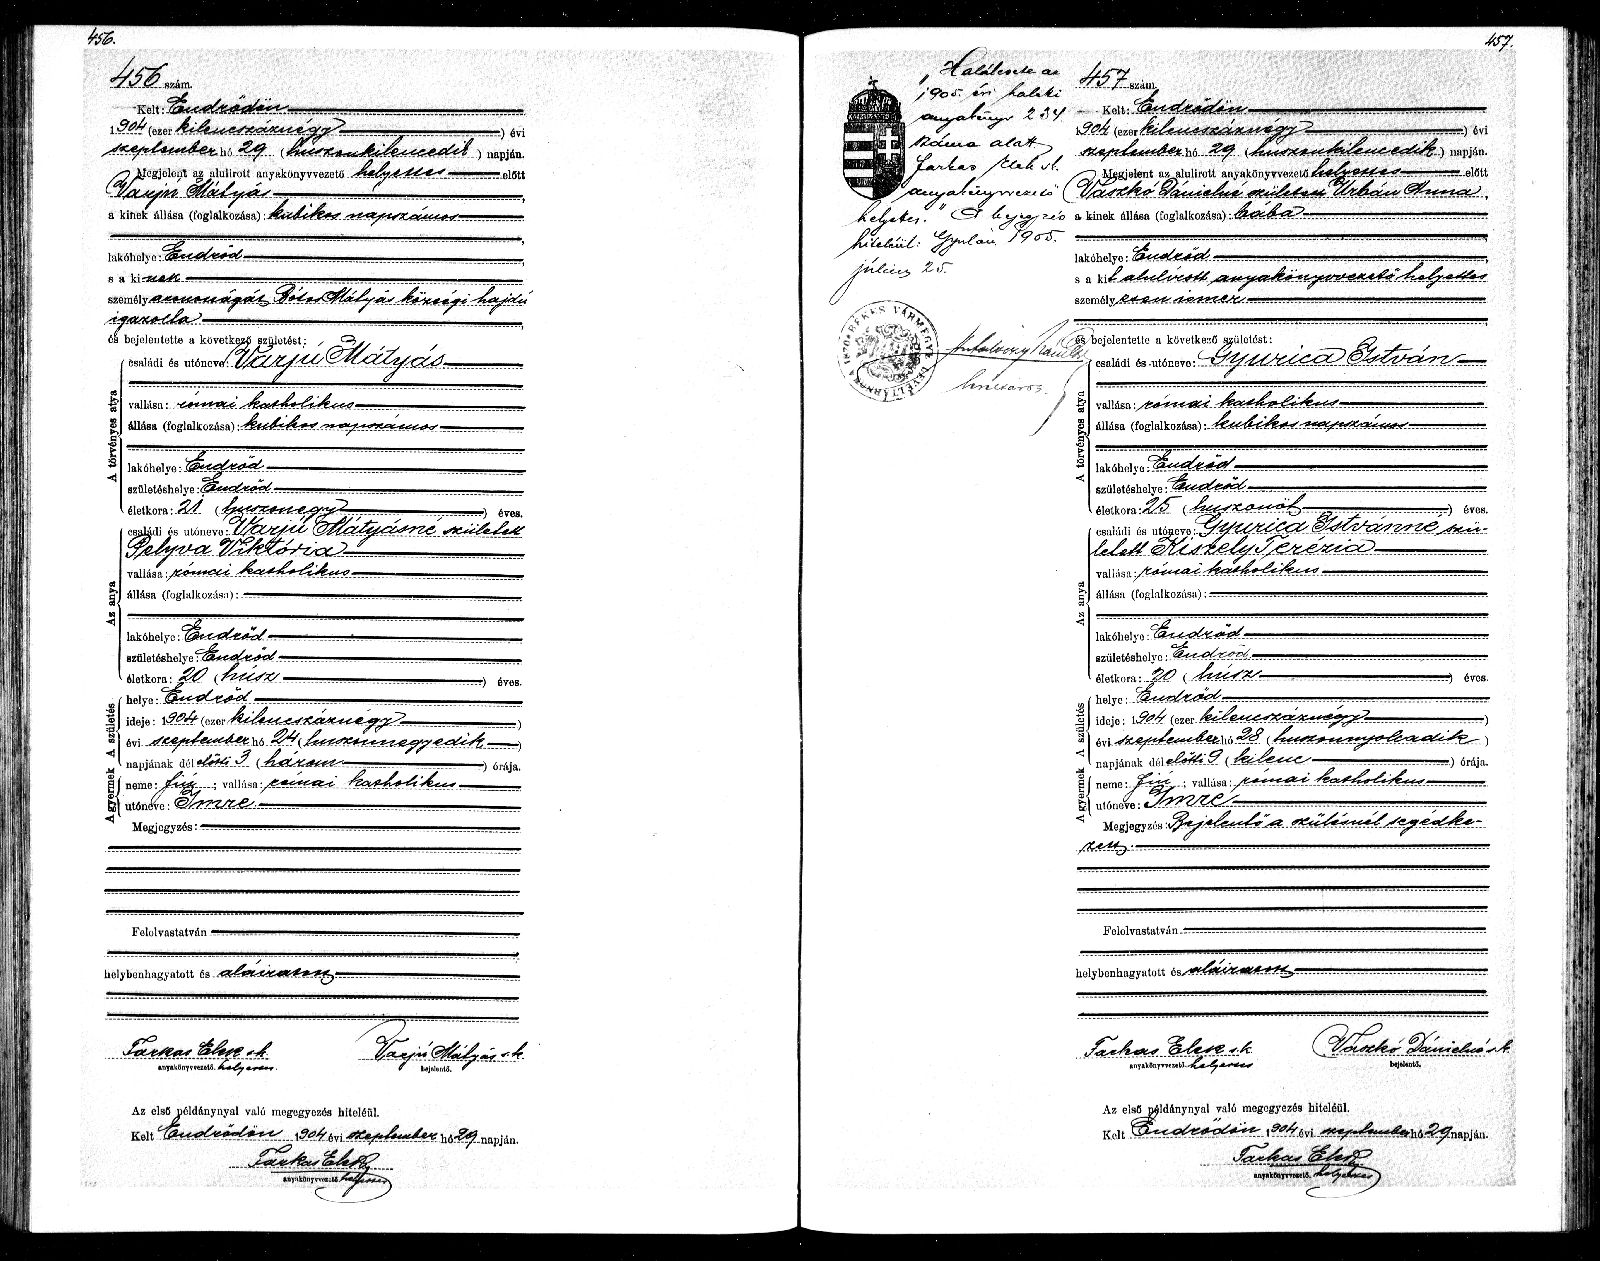 456.
456 szám.
Kelt: Endrődön
1904 (ezer kilencszáznégy) évi
szeptember hó 29 (huszonkilencedik) napján.
Megjelent az alulirott anyakönyvvezető helyettes előtt
Varjú Mátyás,
a kinek állása (foglalkozása): kubikos napszámos
lakóhelye: Endrőd
s a kinek
személyazonosságát Dótos Mátyás községi hajdú
igazolta
és bejelentette a következő születést:
A törvényes atya
családi és utóneve: Varjú Mátyás
vallása: római katholikus
állása (foglalkozása): kubikos napszámos
lakóhelye: Endrőd
születéshelye: Endrőd
életkora: 21 (huszonegy) éves.
Az anya
családi és utóneve: Varjú Mátyásné született
Pelyva Viktória
vallása: római katholikus
állása (foglalkozása):
lakóhelye: Endrőd
születéshelye: Endrőd
életkora: 20 (húsz) éves.
A születés
helye: Endrőd
ideje: 1904 (ezer kilencszáznégy)
évi szeptember hó 24 (huszonnegyedik)
napjának délelőtti 3 (három) órája.
A gyermek
neme: fiú; vallása: római katholikus
utóneve: Imre
Megjegyzés:
Felolvastatván
helybenhagyatott és aláiratott
Farkas Elek s.k. Varjú Mátyás s.k.
anyakönyvvezető helyettes. bejelentő.
Az első példánynyal való megegyezés hiteléül.
Kelt Endrődön 1904 évi szeptember hó 29 napján.
Farkas Elek
anyakönyvvezető helyettes
457.
„Halálesete az
1905. évi halotti
anyakönyv 234
száma alatt
Farkas Elek s.k.
anyakönyvvezető
helyettes." A bejegyzés
hiteléül: Gyulán 1905.
július 25.
BÉKÉS VÁRMEGYE LEVÉLTÁRNOKA 1870
457 szám.
Kelt: Endrődön
1904 (ezer kilencszáznégy) évi
szeptember hó 29 (huszonkilencedik) napján.
Megjelent az alulirott anyakönyvvezető helyettes előtt
Vaszkó Dánielné született Urbán Anna,
a kinek állása (foglalkozása): bába
lakóhelye: Endrőd
s a kit alulírott anyakönyvvezető helyettes
személyesen ismer
és bejelentette a következő születést:
A törvényes atya
családi és utóneve: Gyurica István
vallása: római katholikus
állása (foglalkozása): kubikos napszámos
lakóhelye: Endrőd
születéshelye: Endrőd
életkora: 25 (huszonöt) éves.
Az anya
családi és utóneve: Gyurica Istvánné szü-
letett Kiszely Terézia
vallása: római katholikus
állása (foglalkozása):
lakóhelye: Endrőd
születéshelye: Endrőd
életkora: 20 (húsz) éves.
A születés
helye: Endrőd
ideje: 1904 (ezer kilencszáznégy)
évi szeptember hó 28 (huszonnyolcadik)
napjának délelőtti 9 (kilenc) órája.
A gyermek
neme: fiú; vallása: római katholikus
utóneve: Imre
Megjegyzés: Bejelentő a szülésnél segédke-
zett.
Felolvastatván
helybenhagyatott és aláiratott
Farkas Elek s.k. Vaszkó Dánielné s.k.
anyakönyvvezető helyettes bejelentő.
Az első példánynyal való megegyezés hiteléül.
Kelt Endrődön 1904 évi szeptember hó 29 napján.
Farkas Elek
anyakönyvvezető helyettes